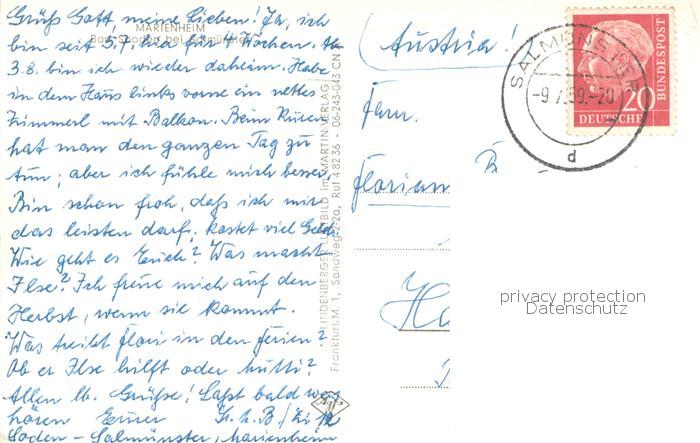 MARIENHEIM
Bad Soden bei Salmünster
Grüß Gott, meine Lieben! Ja, ich
bin seit 5.7. hier für 4 Wochen. Ab
3.8. bin ich wieder daheim. Habe
in dem Haus links vorne ein nettes
Zimmerl mit Balkon. Beim Kuren
hat man den ganzen Tag zu
tun; aber ich fühle mich besser.
Bin schon froh, daß ich mir
das leisten darf, kostet viel Geld.
Wie geht es Euch? Was macht
Ilse? Ich freue mich auf den
Herbst, wenn sie kommt.
Was treibt Flori in den Ferien?
Ob er Ilse hilft oder Mutti?
Allen lb. Grüße! Laßt bald was
hören Eurer
Soden-Salmünster, Marienheim
LINDENBERGER LUFTBILD im MARTIN-VERLAG
Frankfurt M. 1, Sandweg 2-2a, Ruf 48236 - 06-245-043 CN
Agfa
(Austria!)
Fam.
Florian
SALMÜNSTER
-9.7.59.-20
d
20
DEUTSCHE
BUNDESPOST
privacy protection
Datenschutz